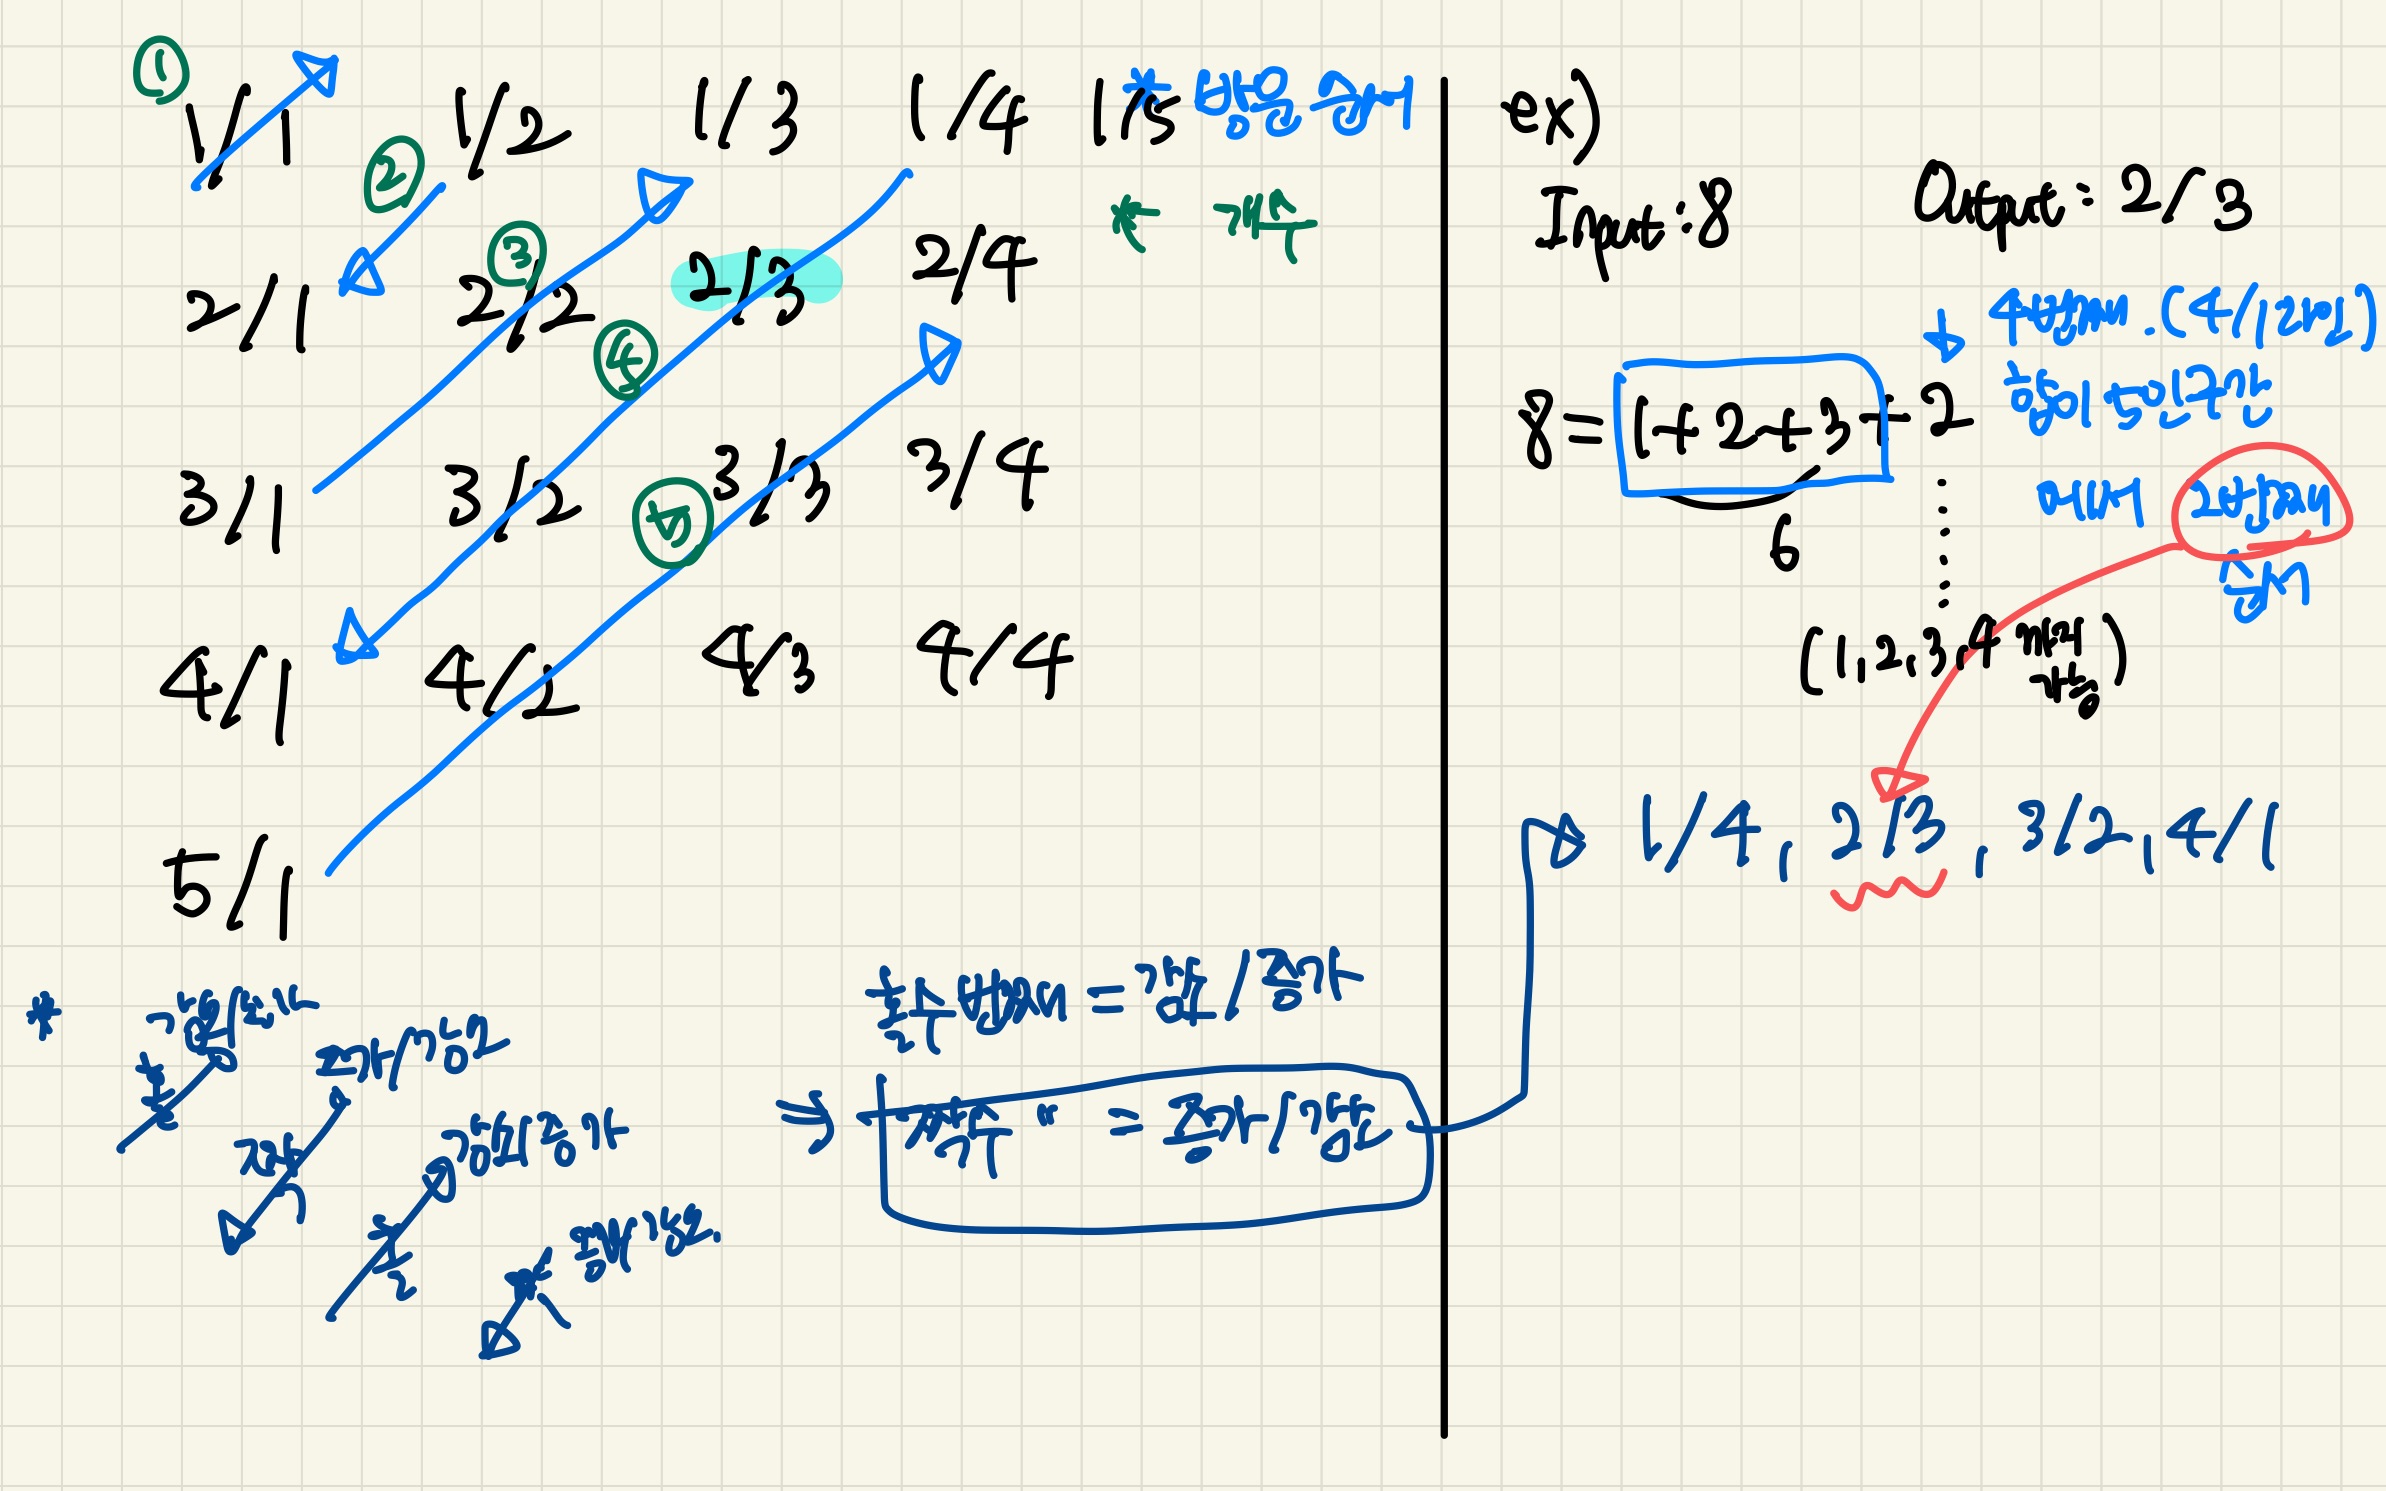 ①
1/1 1/2 1/3 1/4 1/5
* 방향 순서
②
* 개수
③
2/1 2/2 2/3 2/4
④
3/1 3/2 3/3 3/4
⑤
4/1 4/2 4/3 4/4
5/1
*
감소/증가
홀수
증가/감소
짝수
감소/증가
홀수
증가/감소
짝수
홀수 번째 = 감소/증가
⇒ 짝수 " = 증가/감소
ex)
Input : 8 Output : 2/3
8 = 1+2+3 + 2
6
4번째
2번째
숫자
(1, 2, 3, 4
1/4, 2/3, 3/2, 4/1